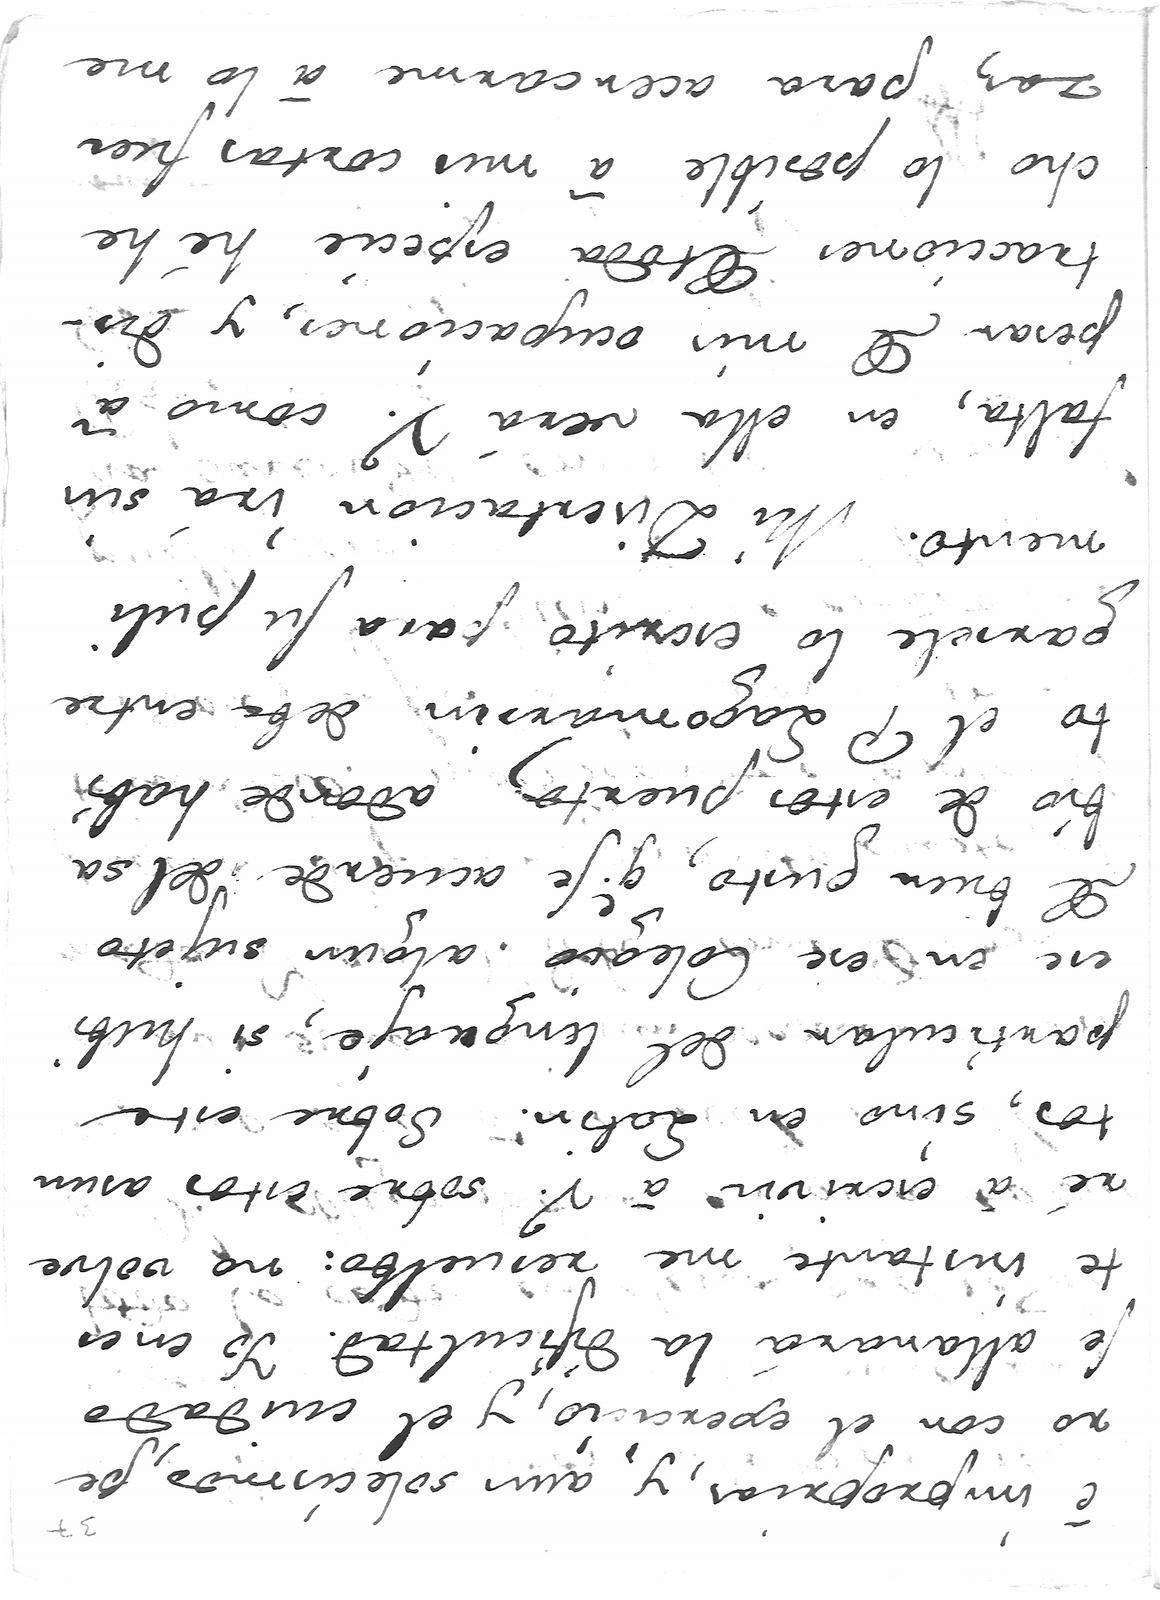 37
é improprios, y, aun solecismos, pe
ro con el exercicio, y el cuidado
se allanará la dificultad. Yo en es
te instante me resuelbo: no volve
ré á escrivir á V. sobre estos asun
tos, sino en Latin. Sobre este
particular del linguaje, si hubi
ese en ese Colegio algun sujeto
de buen gusto, q.e se acuerde del sa
bio de estos puertos, adonde habi
to el P Lagomarsin debe entre
garsele lo escrito para su puli
mento. Mi Disertacion irá sin
falta, en ella verá V. como á
pesar de mis ocupaciones, y dis-
tracciones de toda especie hé he
cho lo posible á mis cortas fuer
zas, para acercarme á lo me